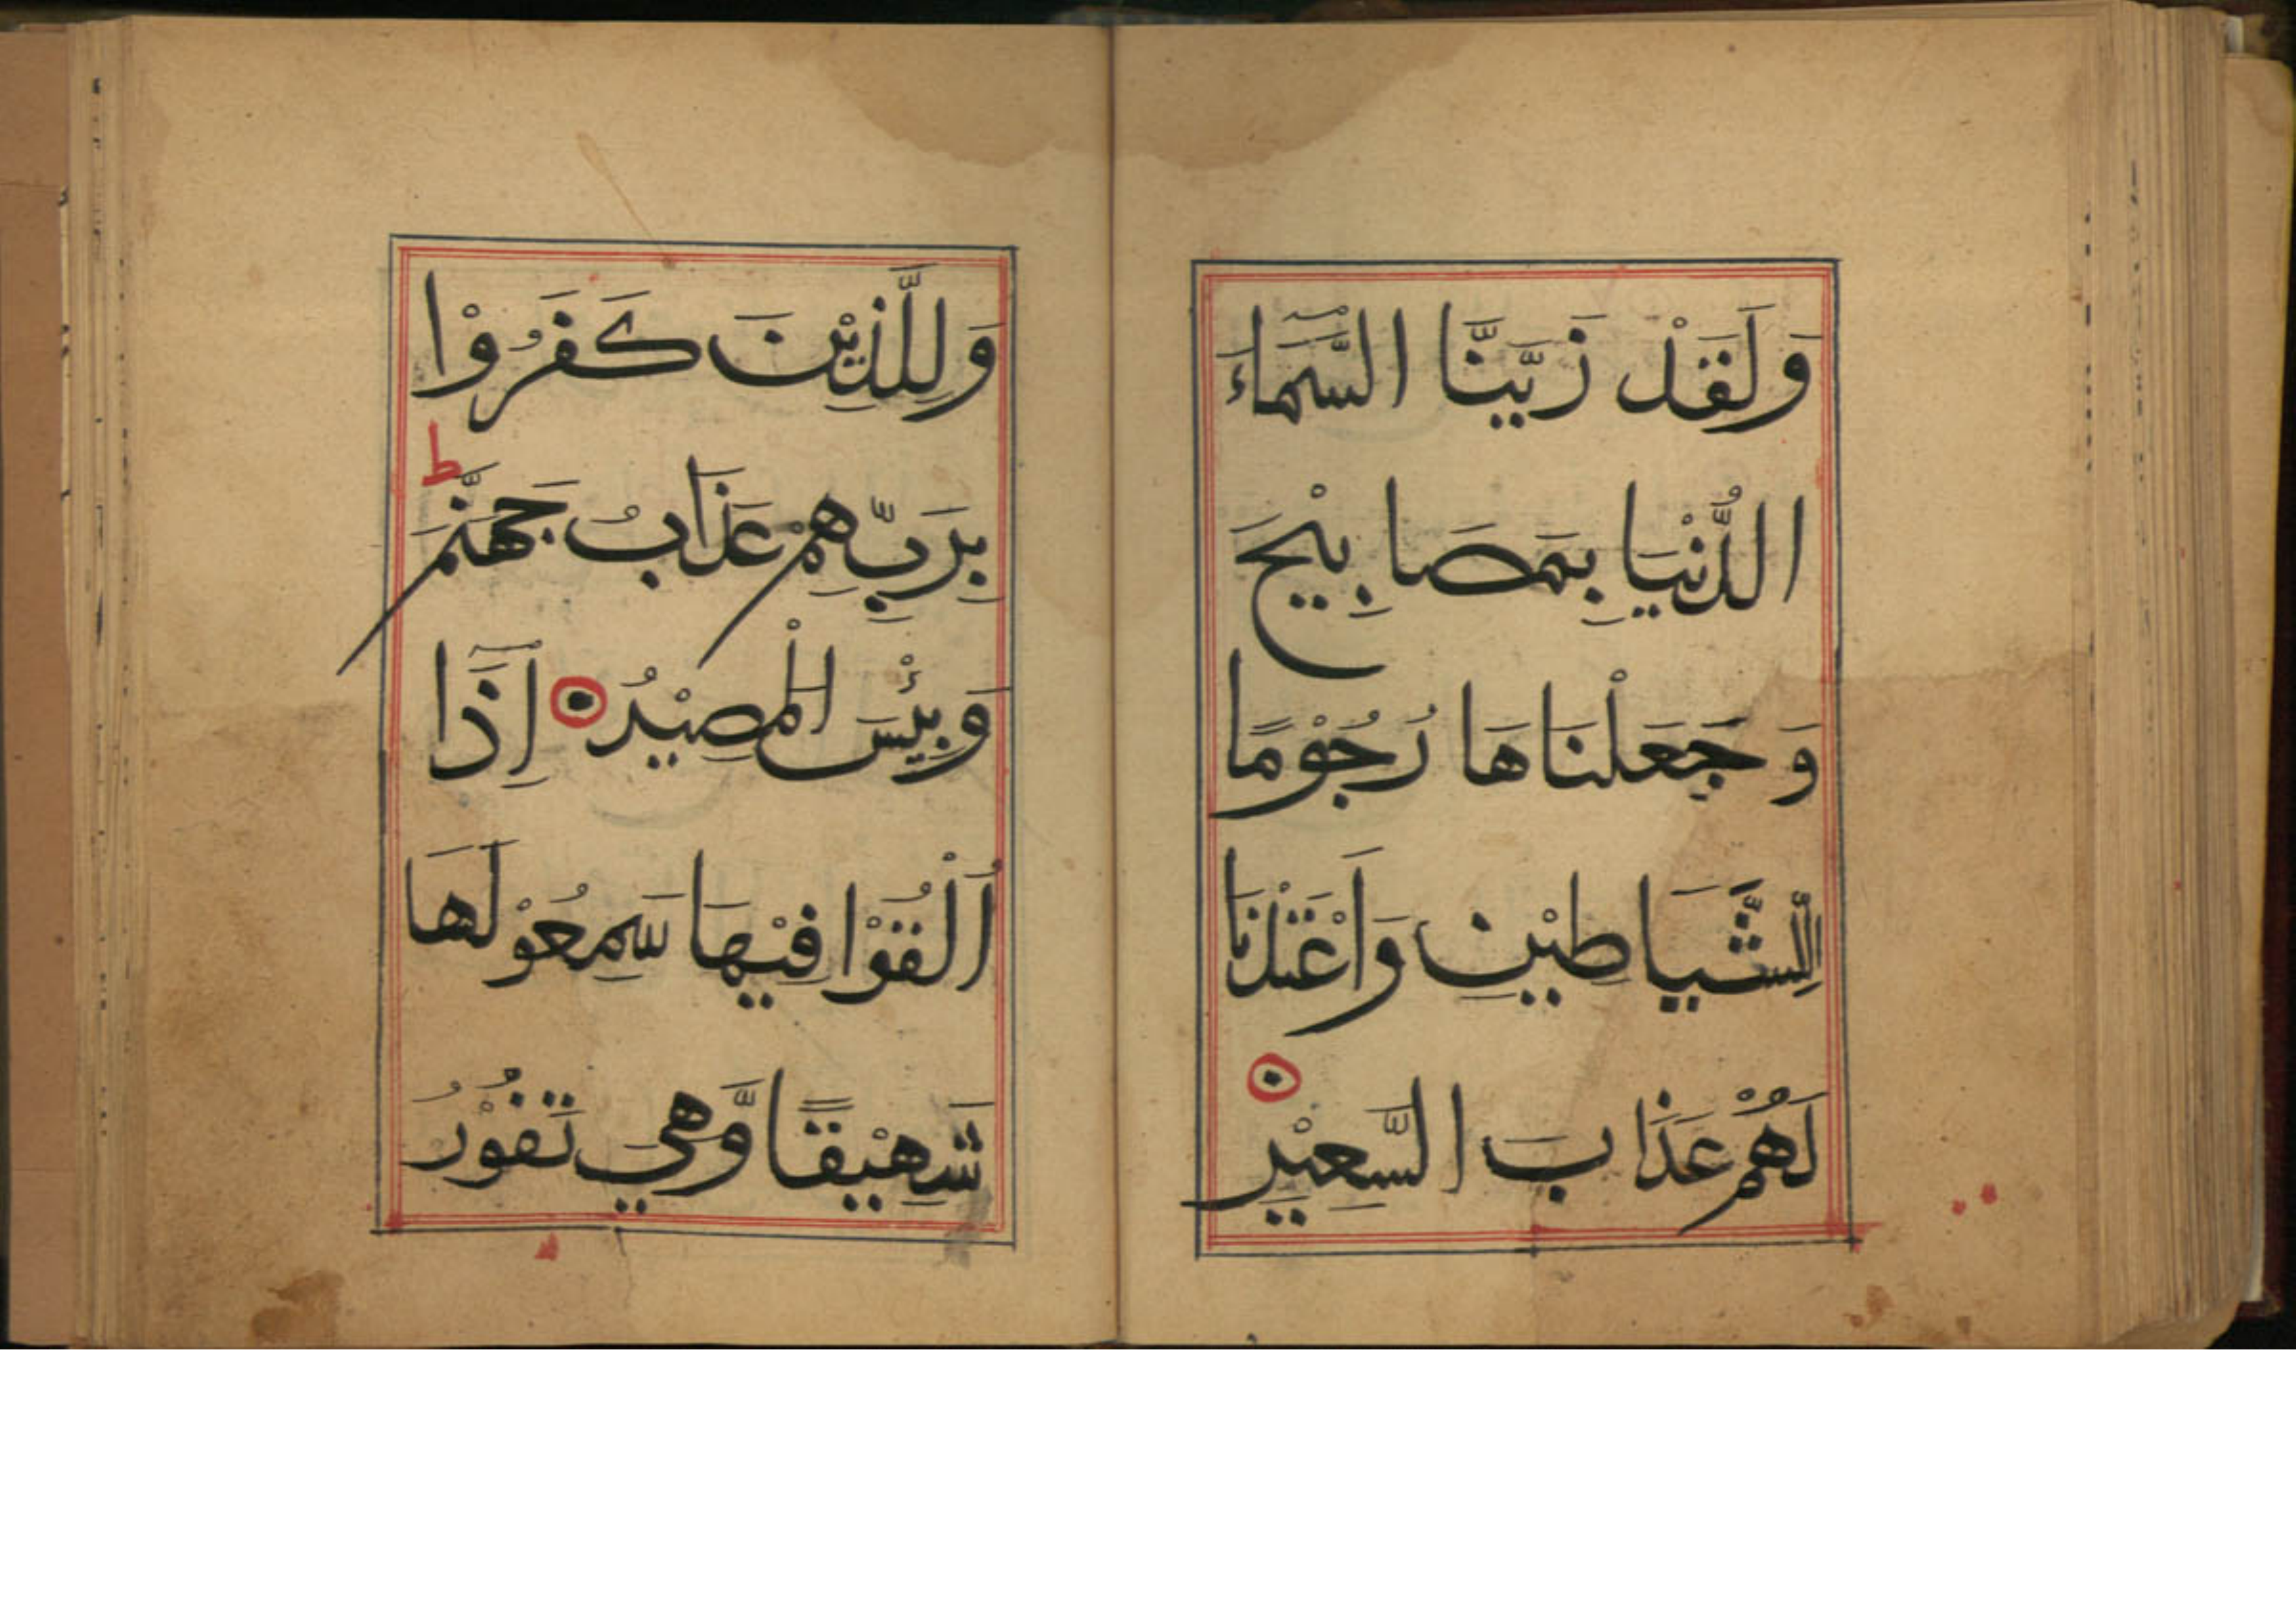 وَلَقَدْ زَيَّنَّا السَّمَآءَ
الدُّنْيَا بِمَصَابِيْحَ
وَجَعَلْنَاهَا رُجُوْمًا
لِلشَّيَاطِيْنِ وَاَعْتَدْنَا
لَهُمْ عَذَابَ السَّعِيْرِ
وَلِلَّذِيْنَ كَفَرُوْا
بِرَبِّهِمْ عَذَابُ جَهَنَّمَ ط
وَبِئْسَ الْمَصِيْرُ اِذَآ
اُلْقُوْا فِيْهَا سَمِعُوْ لَهَا
شَهِيْقًا وَّهِيَ تَفُوْرُ